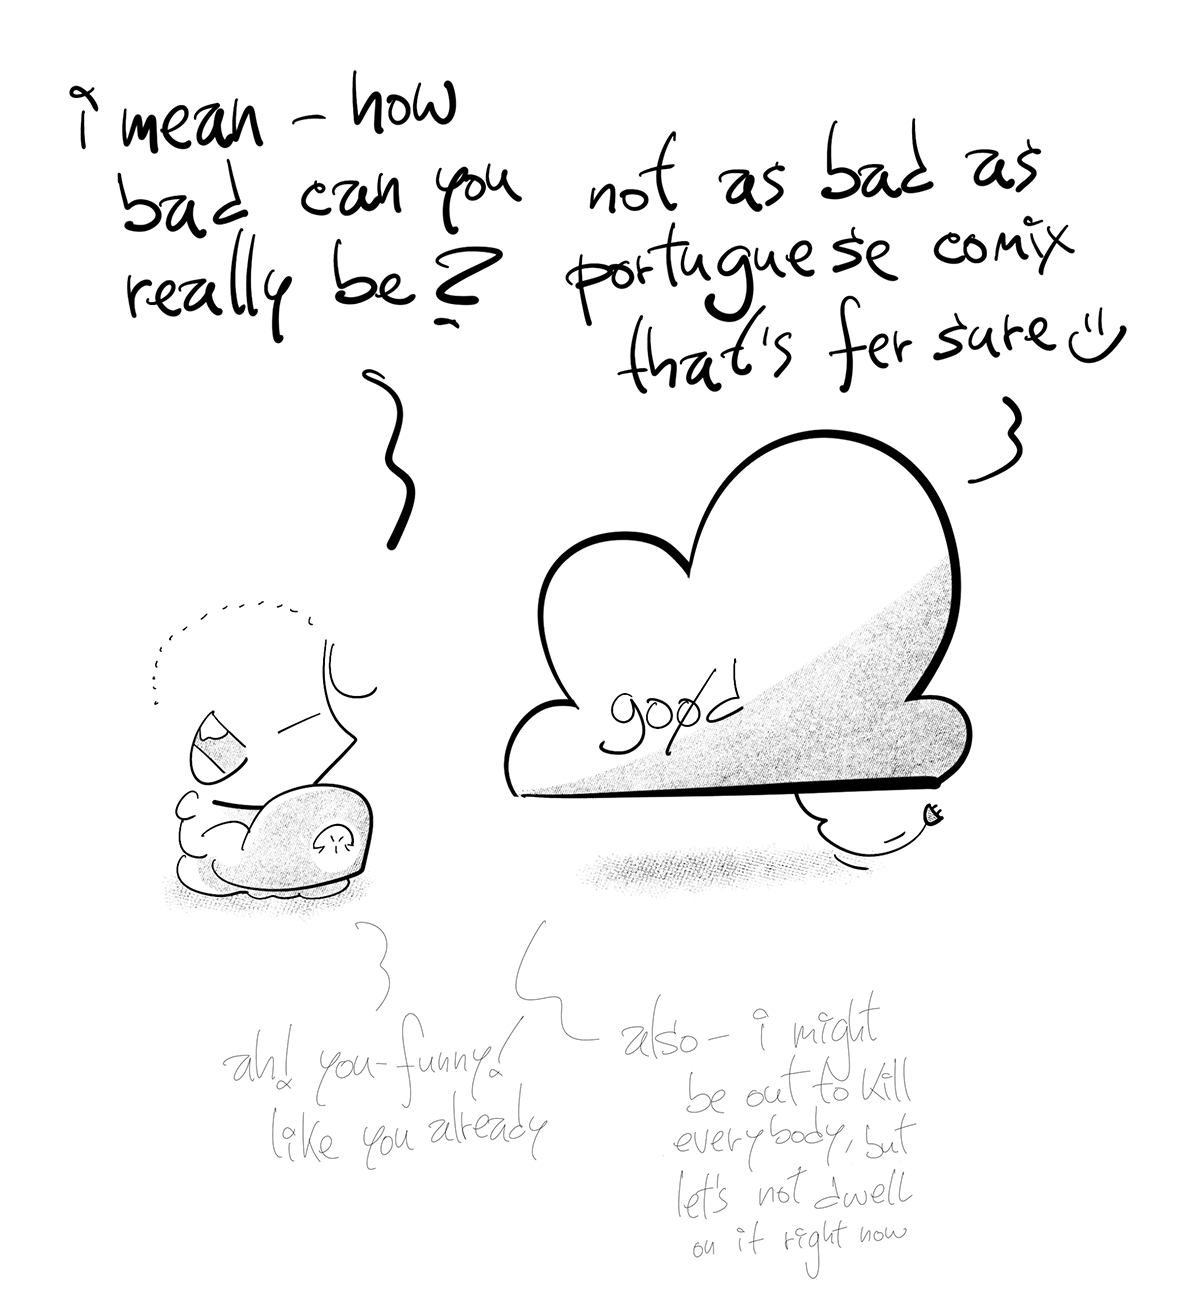 i mean - how
bad can you
really be?
not as bad as
portuguese comix
that's fer sure
good
ah! you-funny!
like you already
also - i might
be out to kill
everybody, but
let's not dwell
on it right now